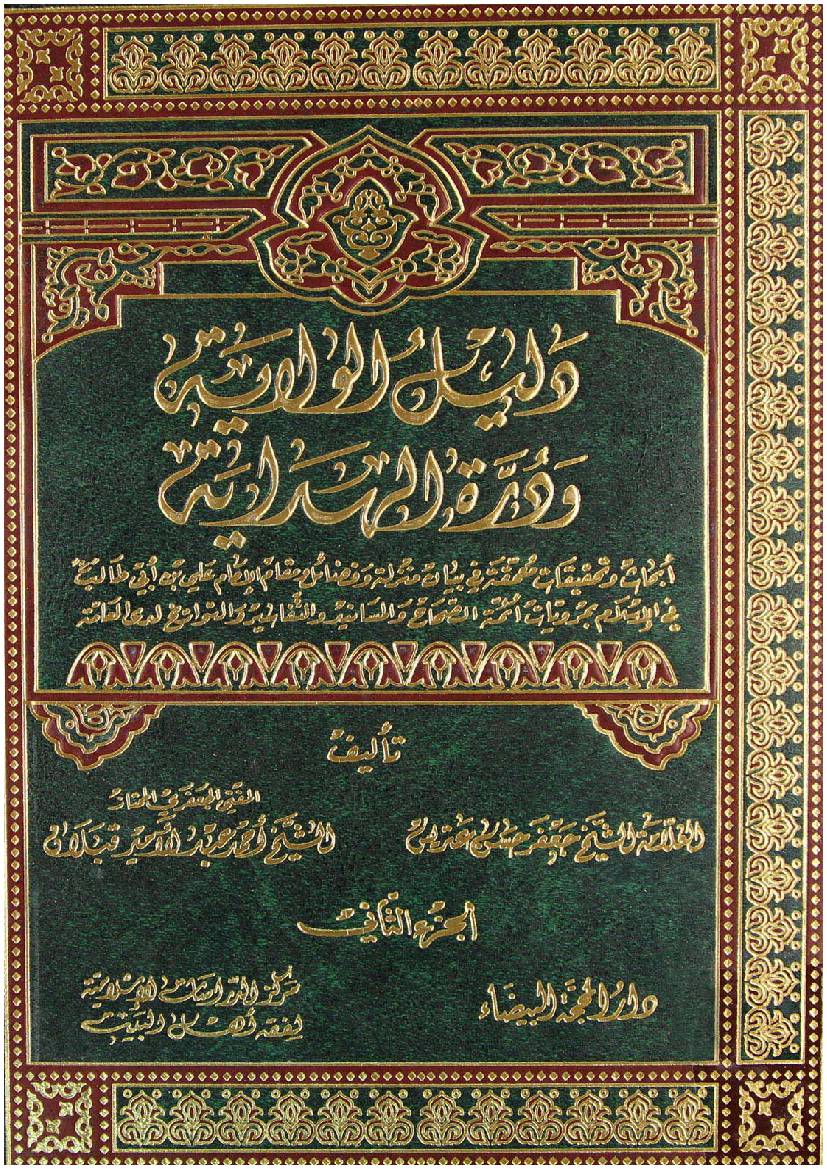 دَليلُ الولاية
وَدُرَّة الهداية
أبحاث وتحقيقات محققة في بيان منزلة وفضائل ومقام الإمام علي بن أبي طالب
في الإسلام بمرويات أئمة الصحاح والمسانيد والتفاسير والتواريخ لدى العامة
تأليف
المفتي الجعفري الممتاز
العلامة الشيخ جعفر حسن عتريس الشيخ أحمد عبد الأمير قبلان
الجزء الثاني
دار المحجة البيضاء
مركز الدراسات الإسلامية
لفقه أهل البيت